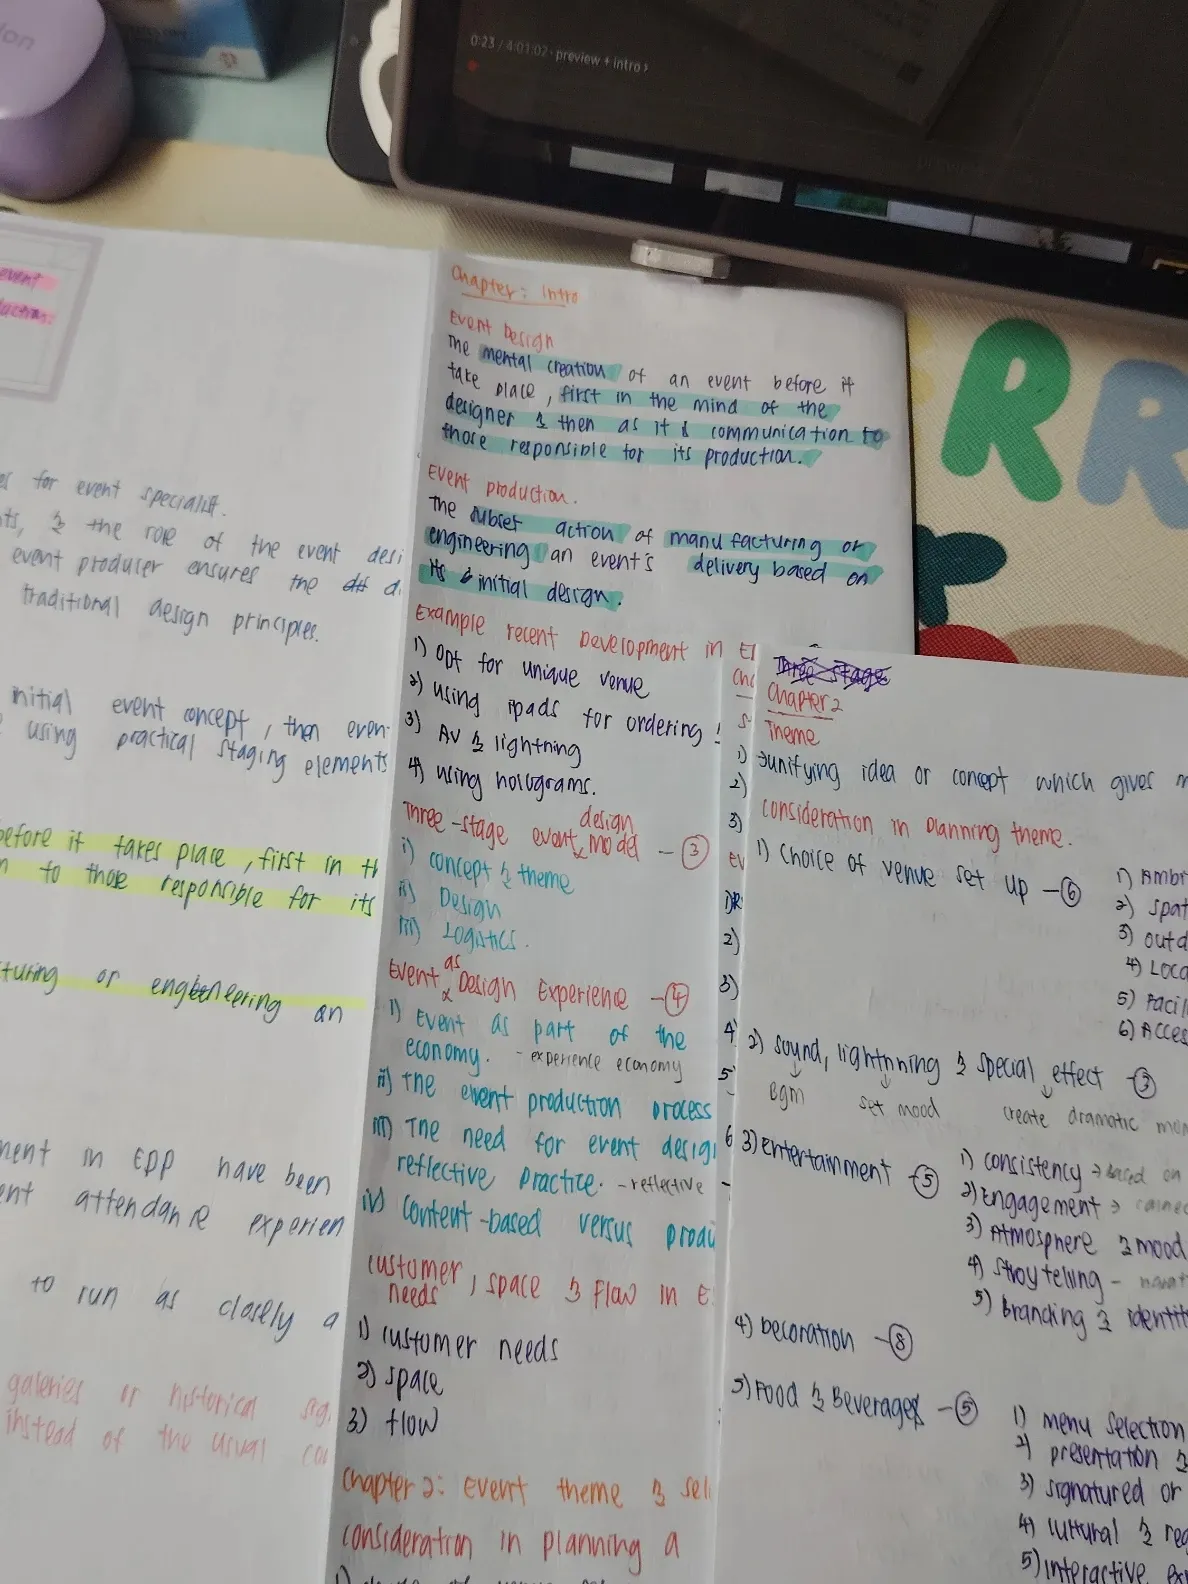 0:23 / 4:01:02 · preview + intro >
event
for event specialist.
& the role of the event
event producer ensures the
traditional design principles.
initial event concept, then
using practical staging elements
before it takes place, first in
to those responsible for its
or engineering an
in EPP have been
attendance
to run as closely a
galeries or historical
instead of the usual
Chapter: Intro
Event Design
The mental creation of an event before it
take place, first in the mind of the
designer & then as it & communication to
those responsible for its production.
Event production.
The subset action of manufacturing or
engineering an event's delivery based on
its & initial design.
Example recent Development in
1) Opt for unique venue
2) using ipads for ordering
3) AV & lightning
4) using holograms.
Three-stage event design model - ③
i) concept & theme
ii) Design
iii) Logistics.
Event as Design Experience - ④
i) Event as part of the
economy. - experience economy
ii) The event production process
iii) The need for event
reflective practice. - reflective
iv) content-based versus
customer, space & flow in
needs
1) customer needs
2) space
3) flow
Chapter 2: Event theme &
consideration in planning a
2)
3)
EV
2)
3)
4
5
6
Three stage
Chapter 2
Theme
unifying idea or concept which gives
consideration in planning theme.
1) Choice of venue set up - ⑥
1)
2)
3)
4)
5)
6)
2) sound, lightnning & special effect - ③
Bgm set mood create dramatic
3) Entertainment - ⑤
1) consistency → based on
2) Engagement →
3) Atmosphere & mood
4) Stroytelling -
5) Branding &
4) Decoration - ⑧
5) Food & Beverages - ⑤
1) menu selection
2) presentation &
3) signatured or
4) cultural &
5) interactive
R R